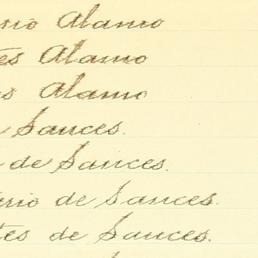 rio Alamo
tes Alamo
s Alamo
Sauces.
de Sauces.
ario de Sauces.
tes de Sauces.